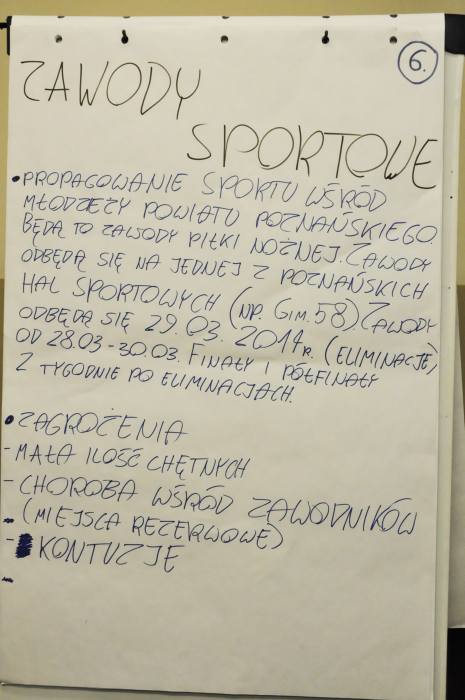 6.
ZAWODY
SPORTOWE
• PROPAGOWANIE SPORTU WŚRÓD
MŁODZEŻY POWIATU POZNAŃSKIEGO.
BĘDĄ TO ZAWODY PIŁKI NOŻNEJ. ZAWODY
ODBĘDĄ SIĘ NA JEDNEJ Z POZNAŃSKICH
HAL SPORTOWYCH (NP. GIM. 58). ZAWODY
ODBĘDĄ SIĘ 29.03.2014r. (ELIMINACJE)
OD 28.03-30.03. FINAŁY I PÓŁFINAŁY
2 TYGODNIE PO ELIMINACJACH.
• ZAGROŻENIA
- MAŁA ILOŚĆ CHĘTNYCH
- CHOROBA WŚRÓD ZAWODNIKÓW
(MIEJSCA REZERWOWE)
- KONTUZJE